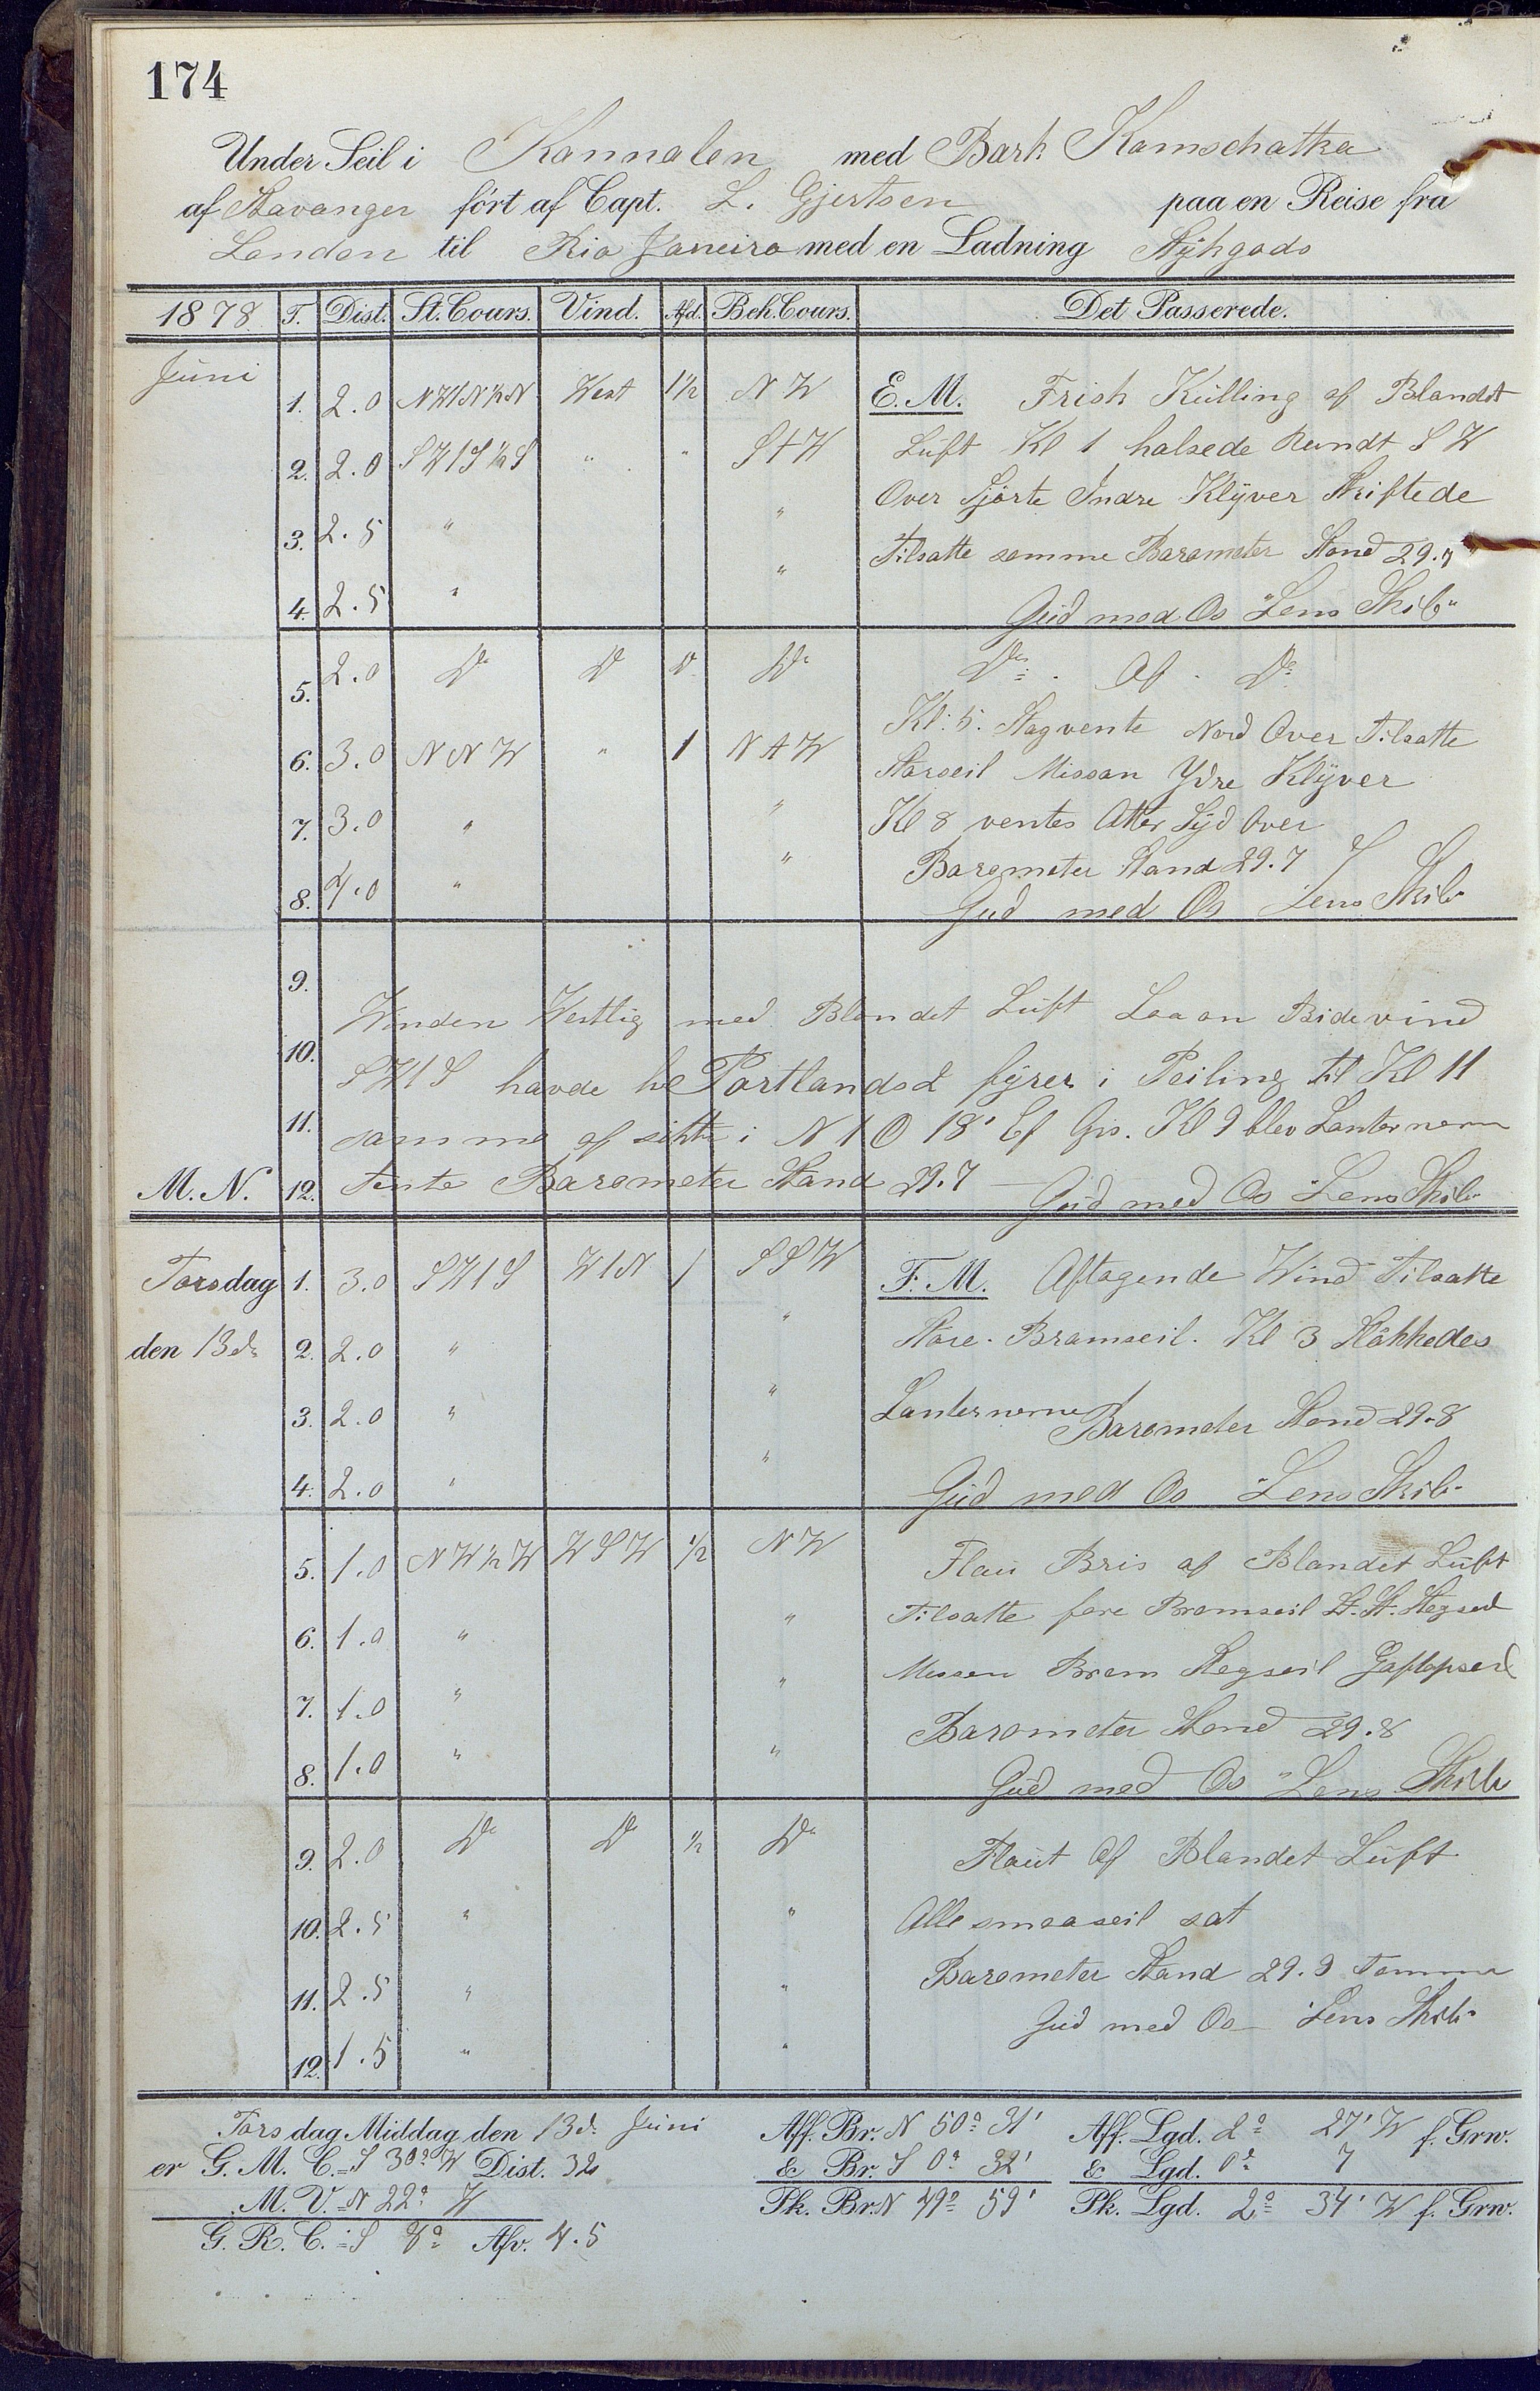 174
Under Seil i Kannalen med Bark Kamschatka
af Stavanger ført af Capt. L. Gjertsen paa en Reise fra
London til Rio Janeiro med en Ladning Stÿkgods
1878 T. Dist. St. Cours. Vind. Afd. Beh. Cours. Det Passerede.
Juni
1. 2.0 NW1N½N West 1½ NW E.M. Frisk Kulling af Blandet
2. 2.0 SW1S½S " " StW Luft Kl 1 halsede Rundt SW
Over Gjorte Indre Klÿver Skiftede
3. 2.5 " "
Tilsatte samme Barometer Stand 29.7
4. 2.5 " "
Gud med Os "Lens Skib"
5. 2.0 Do Do Do Do Do Af Do
Kl: 5. Stagvente Nord Over Tilsatte
6. 3.0 NNW " 1 NtW
Storseil Missan Ydre Klÿver
7. 3.0 " " Kl 8 ventes Atter Syd Over
Barometer Stand 29.7
8. 4.0 " "
Gud med Os Lens Skib
9.
Winden Westlig med Blandet Luft Laa an Bidevind
10.
SW1S havde de Portlands 2 fÿrer i Peiling til Kl 11
11.
samme af sikte i N1O 18' Ef Gis. Kl 9 blev Lanternerne
M.N. 12. Tente Barometer Stand 29.7 Gud med Os Lens Skib
Torsdag 1. 3.0 SW1S W1N 1 SSW F.M. Aftagende Wind Tilsatte
den 13de 2. 2.0 " " Store Bramseil. Kl 3 Slukkedes
3. 2.0 " " Lanternerne Barometer Stand 29.8
4. 2.0 " " Gud med Os Lens Skib
5. 1.0 NW½W WSW ½ NW Flau Bris af Blandet Luft
6. 1.0 " " Tilsatte fore Bramseil St. St. Stagseil
7. 1.0 " " Messan Bram Stagseil Gaftopseil
Barometer Stand 29.8
8. 1.0 " "
Gud med Os "Lens Skib
9. 2.0 Do Do ½ Do Flaut Af Blandet Luft
10. 2.5 " " Alle smaaseil sat
11. 2.5 " " Barometer Stand 29.9 Tomme
Gud med Os Lens Skib
12. 1.5 " "
Torsdag Middag den 13de Juni Aff. Br. N 50° 31' Aff. Lgd. 2° 27' W f. Grw.
er G. M. C. = S 30° W Dist. 32 & Br. S 0° 32' & Lgd. 0° 7
M. V. = N 22° W Pk. Br. N 49° 59' Pk. Lgd. 2° 34' W f. Grw.
G. R. C. = S 8° Afv. 4.5